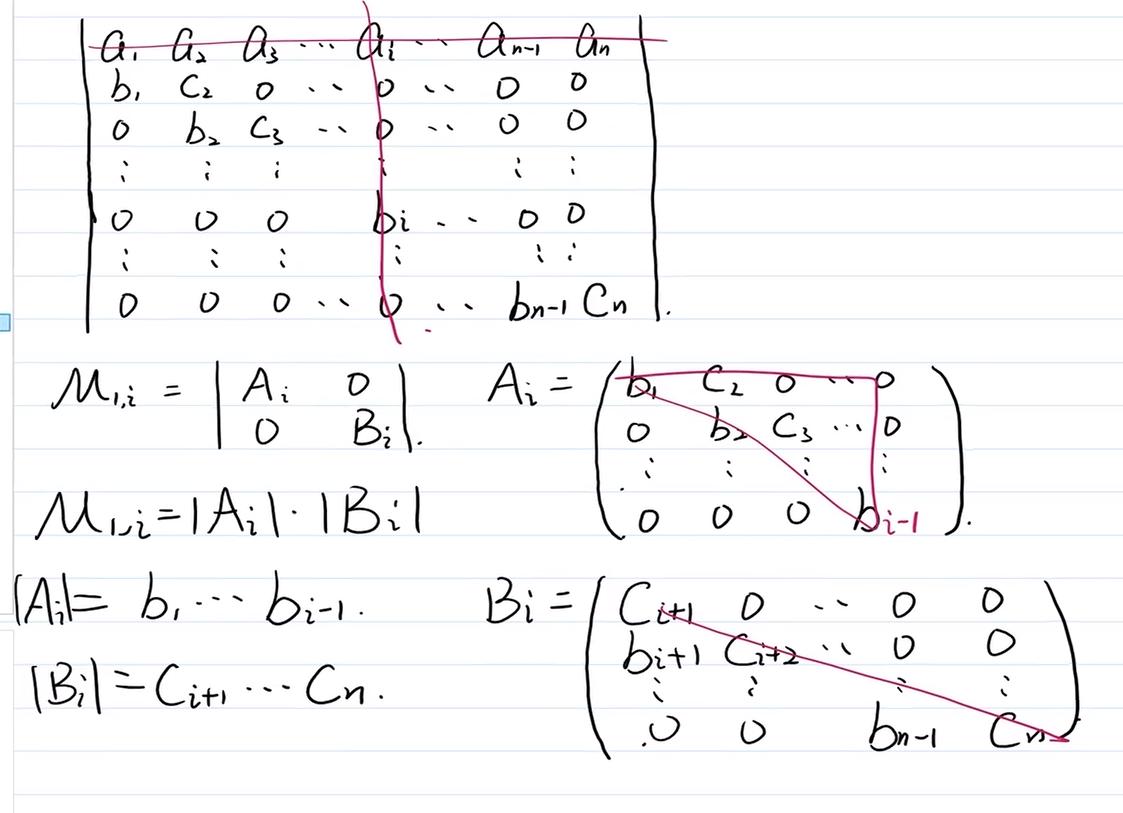 a₁ a₂ a₃ ··· aᵢ ·· aₙ₋₁ aₙ
b₁ c₂ 0 ·· 0 ·· 0 0
0 b₂ c₃ ·· 0 ·· 0 0
⋮ ⋮ ⋮ ⋮ ⋮ ⋮
0 0 0 bᵢ ·· 0 0
⋮ ⋮ ⋮ ⋮ ⋮ ⋮
0 0 0 ·· 0 ·· bₙ₋₁ Cₙ .
M₁,ᵢ = | Aᵢ 0 |
| 0 Bᵢ | .
Aᵢ = ( b₁ C₂ 0 ·· 0
0 b₂ C₃ ··· 0
⋮ ⋮ ⋮ ⋮
0 0 0 bᵢ₋₁ ) .
M₁,ᵢ = |Aᵢ| · |Bᵢ|
|Aᵢ| = b₁ ··· bᵢ₋₁ .
Bᵢ = ( Cᵢ₊₁ 0 ·· 0 0
bᵢ₊₁ Cᵢ₊₂ ·· 0 0
⋮ ⋮ ⋮ ⋮
0 0 bₙ₋₁ Cₙ )
|Bᵢ| = Cᵢ₊₁ ··· Cₙ .